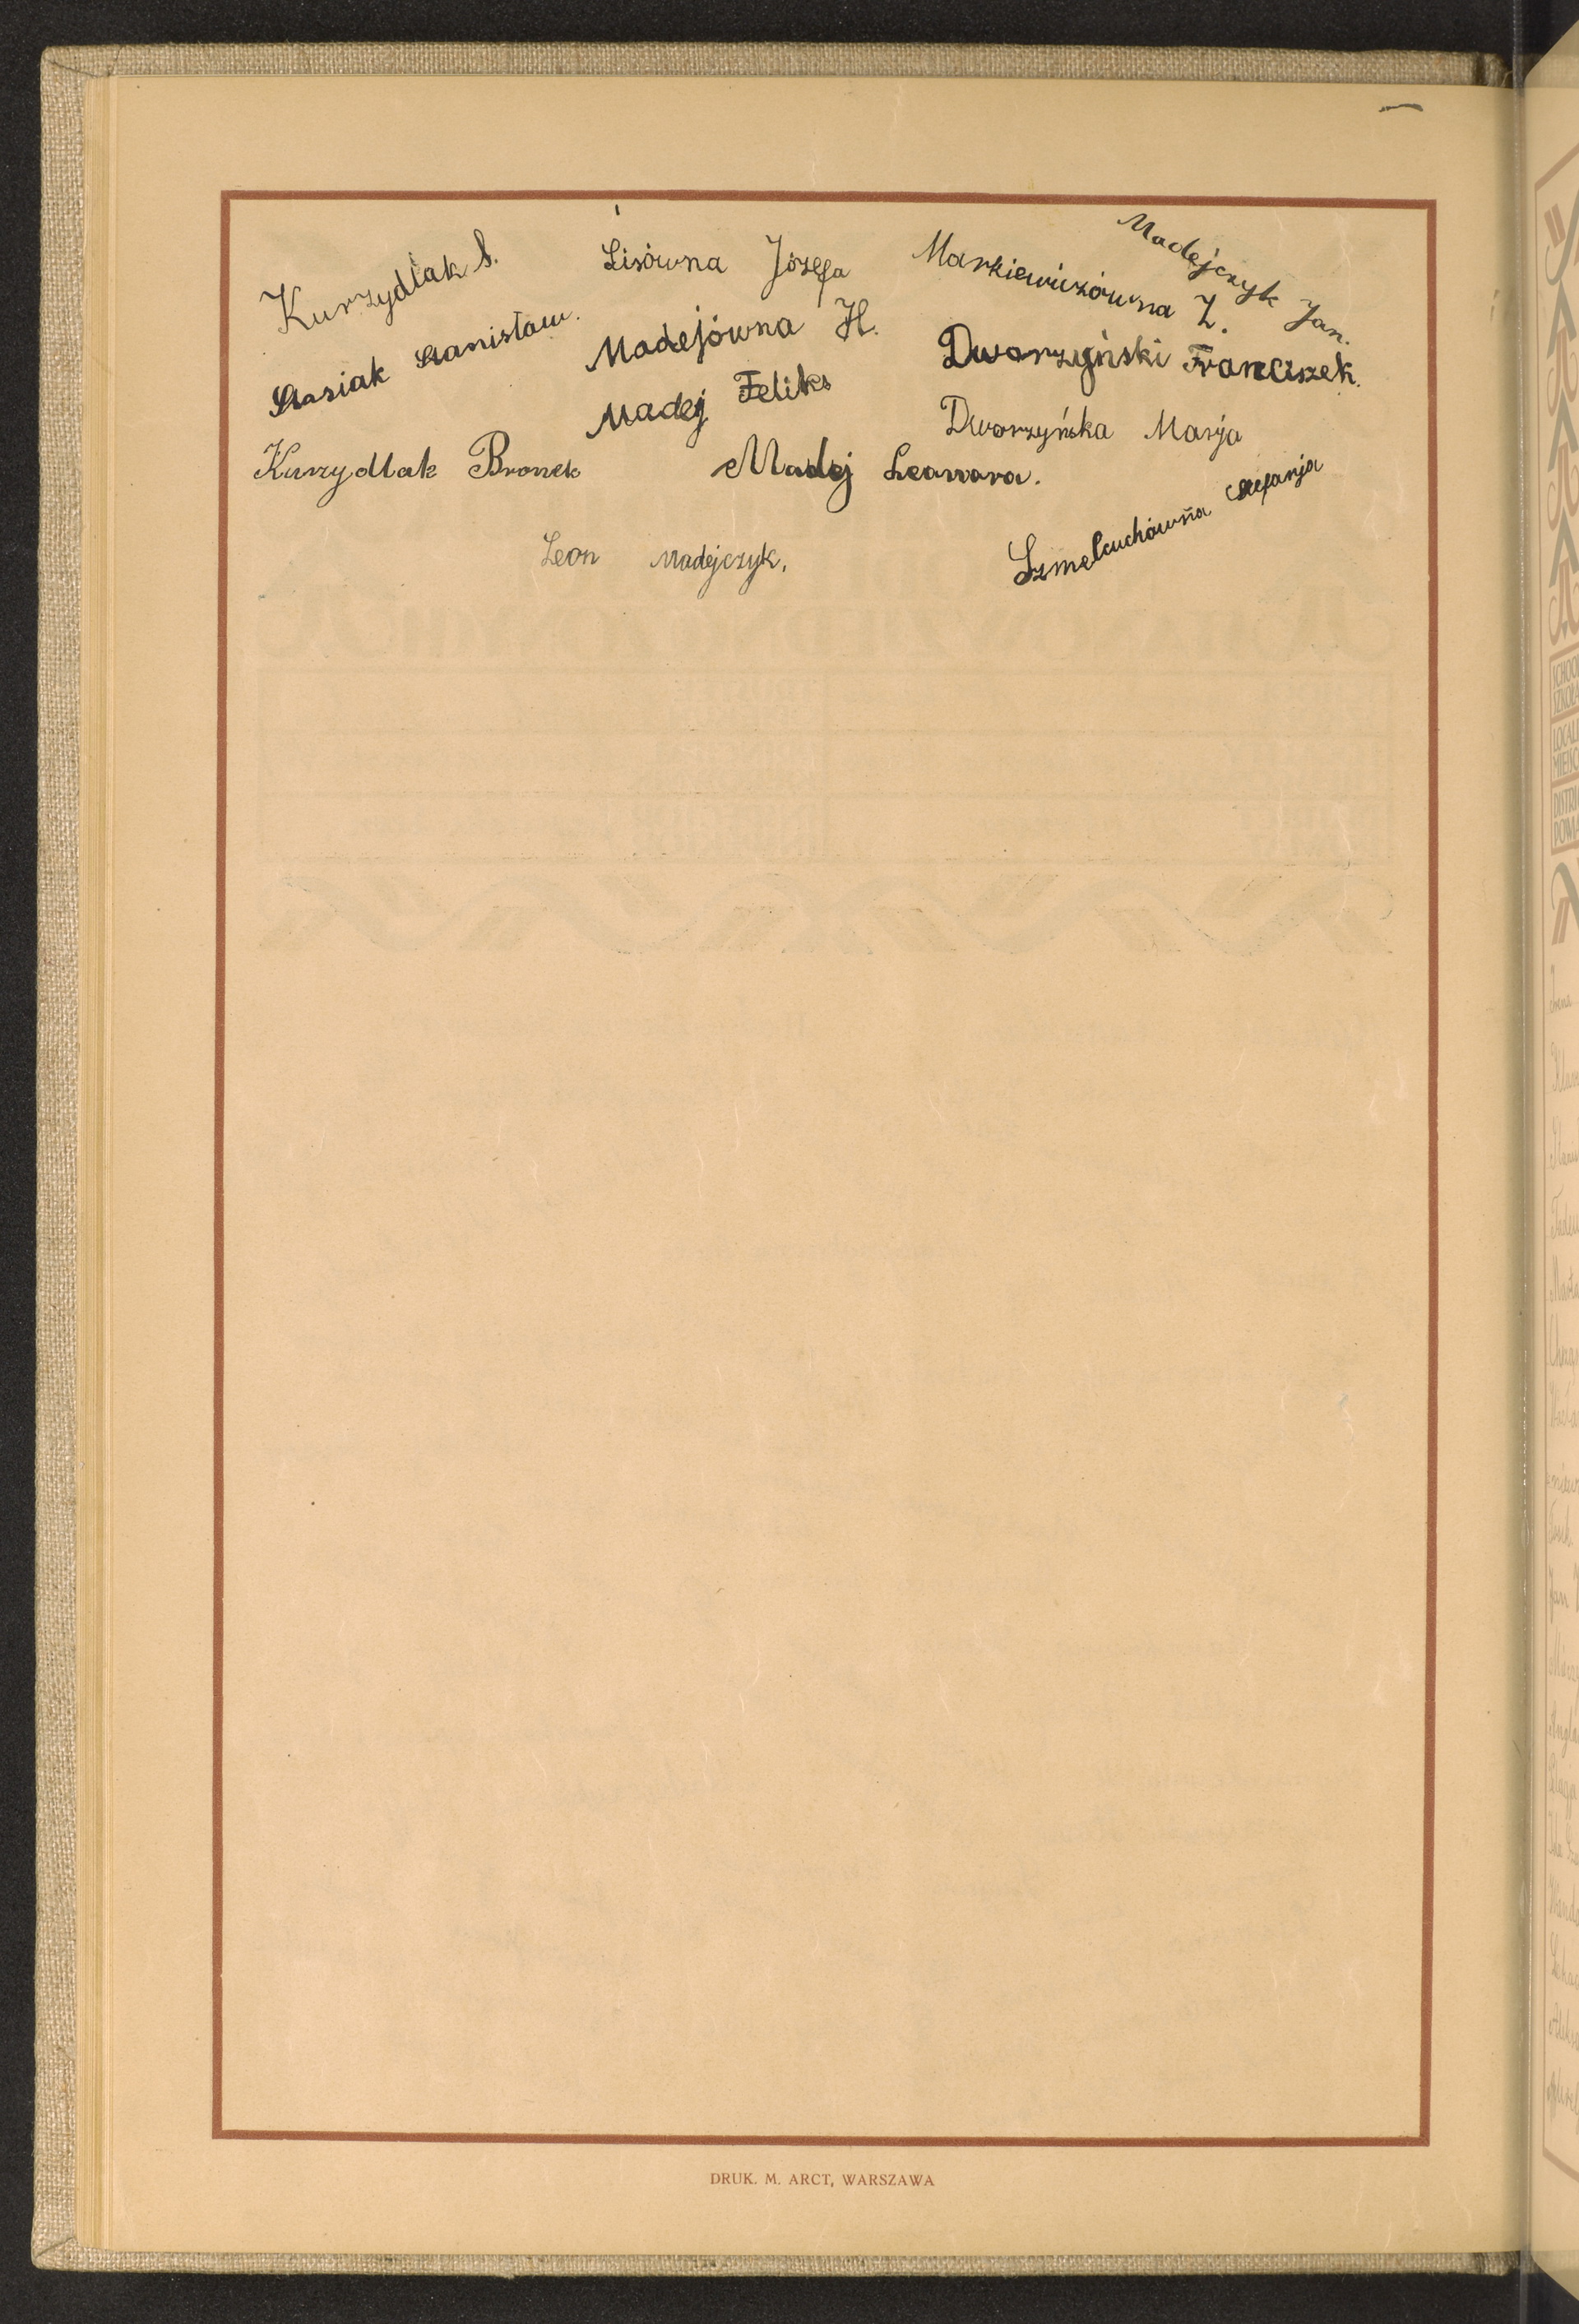 Kurzydlak S.
Lisówna Józefa
Markiewiczówna Z.
Madejczyk Jan.
Stasiak Stanisław.
Madejówna H.
Dworzyński Franciszek.
Madej Feliks
Dworzyńska Marja
Kurzydlak Bronek
Madej
Stefanja
Leon Madejczyk.
DRUK. M. ARCT, WARSZAWA